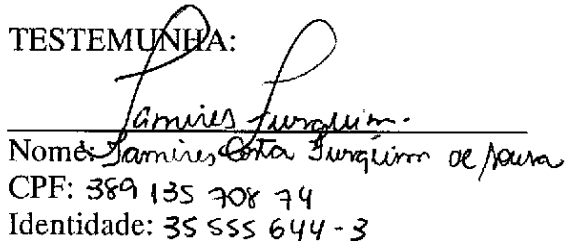 TESTEMUNHA:
Tamires Furquim.
Nome: Tamires Costa Furquim de Sousa
CPF: 389 135 708 74
Identidade: 35 555 644-3